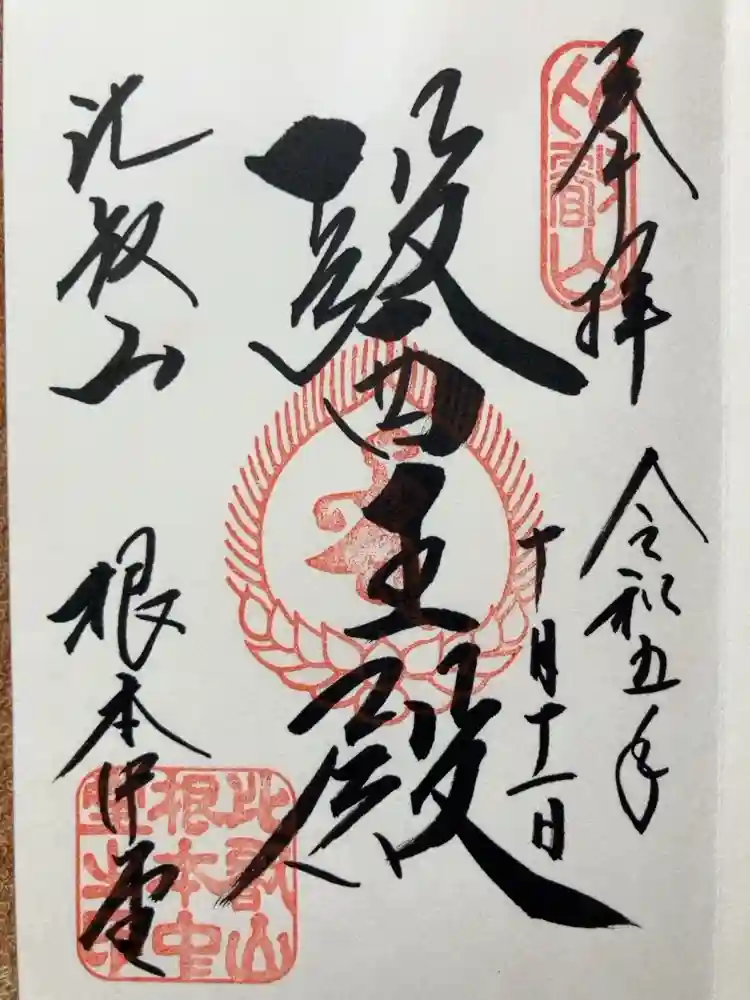 奉拝
令和五年
十月十一日
醫王殿
比叡山
根本中堂
比叡山
比叡山
根本中
堂之印